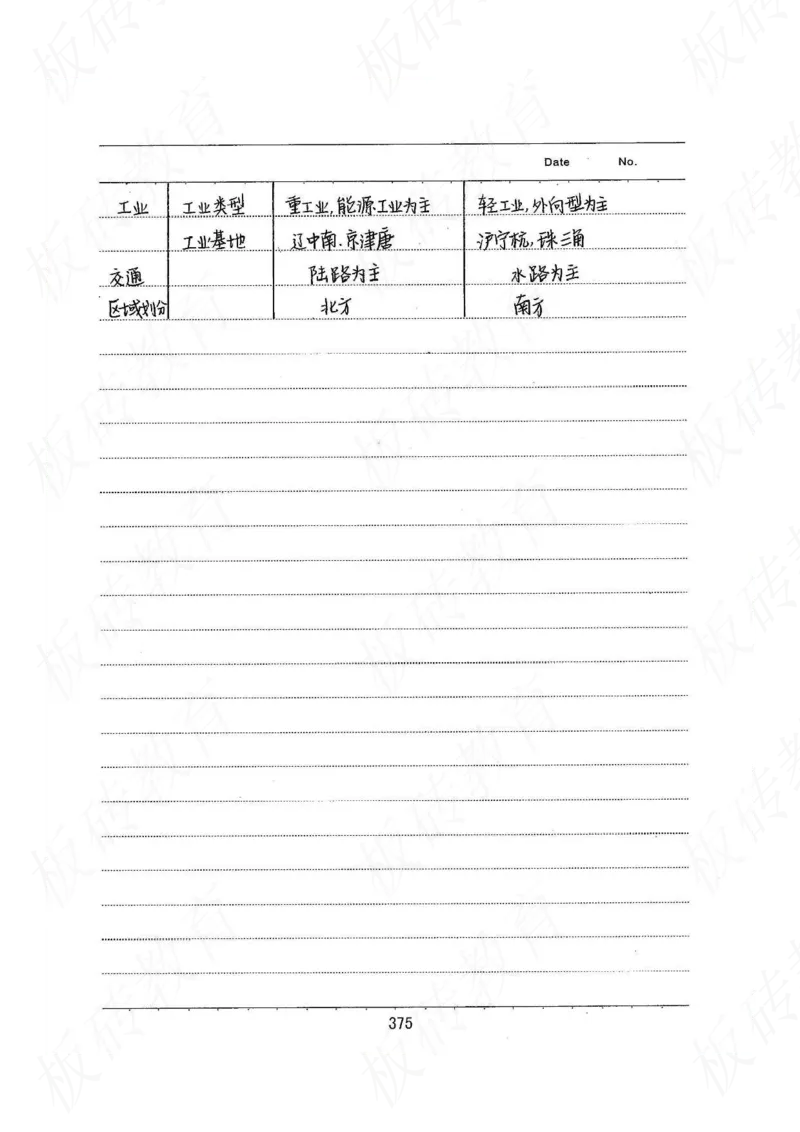 Date No.
工业 工业类型 重工业,能源工业为主 轻工业,外向型为主
工业基地 辽中南.京津唐 沪宁杭,珠三角
交通 陆路为主 水路为主
区域划分 北方 南方
375
板砖教育